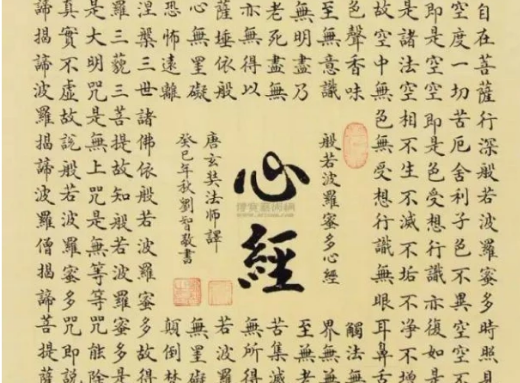 自在菩薩行深般若波羅蜜多時照見
空度一切苦厄舍利子色不異空空不
即是空空即是色受想行識亦復如是
是諸法空相不生不滅不垢不淨不增
故空中無色無受想行識無眼耳鼻舌
色聲香味
觸法無
至無意識
界無無
無明盡乃
至無老
老死盡無
苦集滅
亦無得以
無所得
薩埵依般
若波羅
心無罣礙
無罣礙
恐怖遠離
顛倒夢
般若波羅蜜多心經
心經
唐玄奘法師譯
癸巳年秋劉智敬書
涅槃三世諸佛依般若波羅蜜多故得
羅三藐三菩提故知般若波羅蜜多是
是大明咒是無上咒是無等等咒能除
真實不虛故說般若波羅蜜多咒即說
諦揭諦波羅揭諦波羅僧揭諦菩提薩